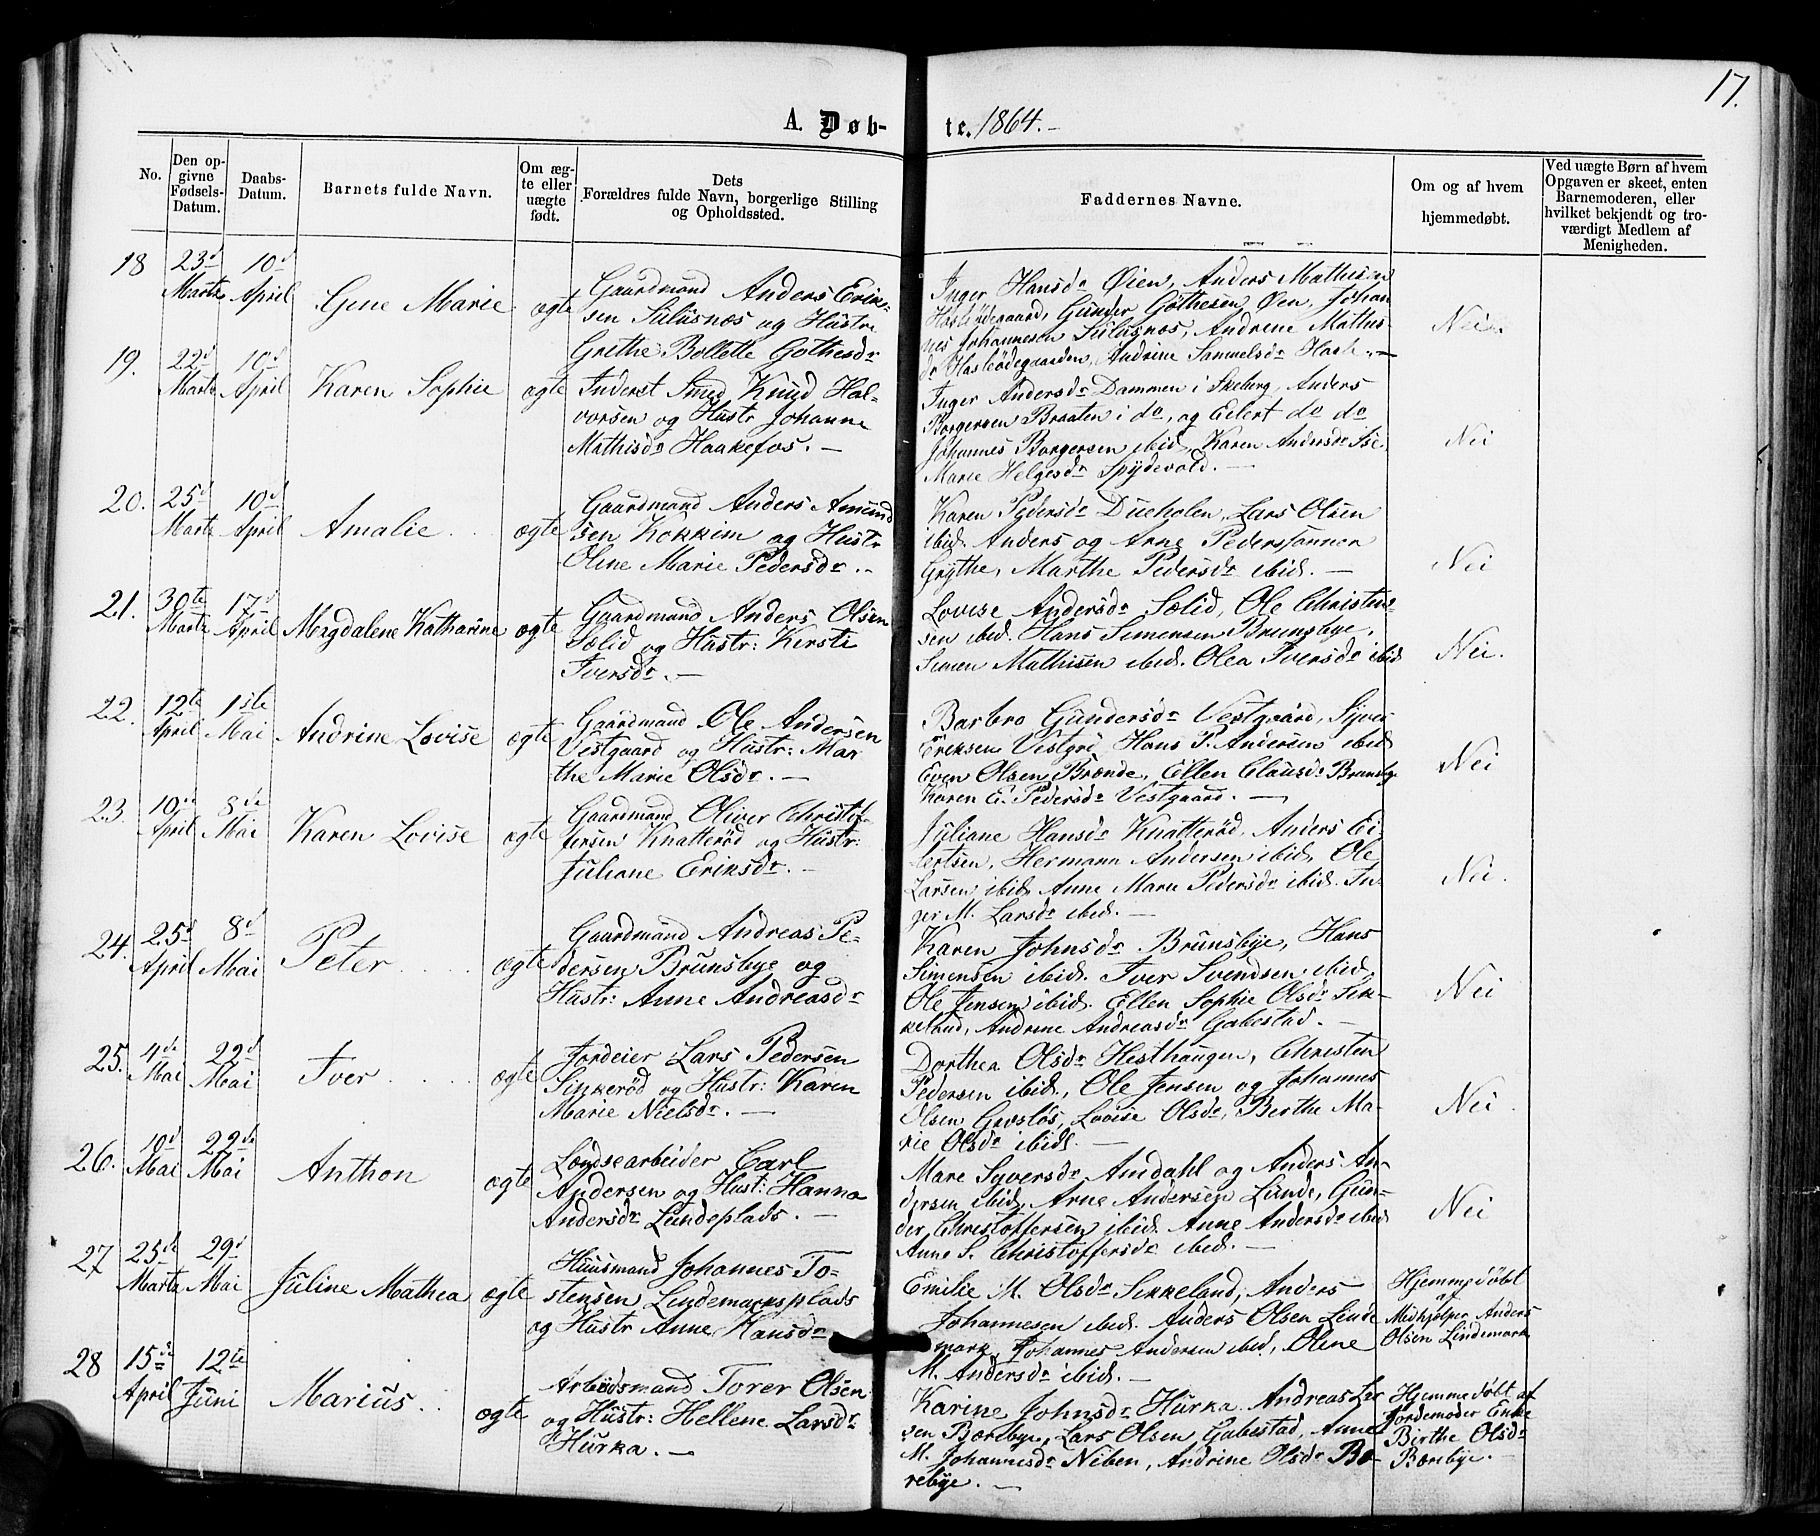 17.
A. Døb-
te. 1864.-
No.
Den op-
givne
Fødsels-
Datum.
Daabs-
Datum.
Barnets fulde Navn.
Om æg-
te eller
uægte
født.
Dets
Forældres fulde Navn, borgerlige Stilling
og Opholdssted.
Faddernes Navne.
Om og af hvem
hjemmedøbt.
Ved uægte Børn af hvem
Opgaven er skeet, enten
Barnemoderen, eller
hvilket bekjendt og tro-
værdigt Medlem af
Menigheden.
18
23d
Marts
10d
April
Gene Marie
ægte
Gaardmand Anders Erik-
sen Sulusnæs og Hustr:
Grethe Bollette Gothesdr
Inger Hansdr Øien, Anders Mathisen
Haslødegaard, Gunder Gothesen Øen, Johan
nes Johannesen Sulusnæs, Andrene Mathis-
dr Haslødegaarden, Andrine Samuelsdr Hasle.-
Nei.
19.
22d
Marts
10d
April
Karen Sophie
ægte
Inderst Smed Knud Hal-
vorsen og Hustr Johanne
Mathisdr Haakefos.-
Inger Andersdr Dammen i Skeberg, Anders
Borgersen Braaten i do, og Eilert do do
Johannes Borgersen ibid, Karen Andersdr
Marie Helgesdr Spydevold.-
Nei
20.
25d
Marts
10d
April
Amalie
ægte
Gaardmand Anders Amund
sen Kokkim og Hustr
Oline Marie Pedersdr.-
Karen Pedersdr Dueholen, Lars Olsen
ibid. Anders og Arne Pederssønner
Grythe, Marthe Pedersdr ibid.-
Nei
21.
30te
Marts
17d
April
Magdalene Katharine
ægte
Gaardmand Anders Olsen
Sælid og Hustr: Kirsti
Iversdr.-
Lovise Andersdr Sælid, Ole Christen-
sen ibid. Hans Simensen Brunsbye,
Simen Mathisen ibid. Olea Iversdr ibid
Nei.
22.
12te
April
1ste
Mai
Andrine Lovise
ægte
Gaardmand Ole Andersen
Vestgaard og Hustr: Mar
the Marie Olsdr.-
Barbro Gundersdr Vestgaard, Syver
Eriksen Vestgrd Hans P. Andersen ibid
Even Olsen Brænde, Ellen Clausdr Brunsby
Karen E. Pedersdr Vestgaard.-
Nei
23.
10de
April
8de
Mai
Karen Lovise
ægte
Gaardmand Oliver Christof-
fersen Knatterød og Hustr:
Juliane Eriksdr.-
Juliane Hansdr Knatterød, Anders Ei-
lertsen, Hermann Andersen ibid, Ole
Larsen ibid Anne Marie Pedersdr ibid. In-
ger M. Larsdr ibid.-
Nei.
24.
25d
April
8d
Mai
Peter
ægte
Gaardmand Andreas Pe-
dersen Brunsbye og
Hustr: Anne Andreasdr
Karen Johnsdr Brunsbye, Hans
Simensen ibid. Iver Svendsen ibid,
Ole Jensen ibid. Ellen Sophie Olsdr Sik-
keland, Andrine Andreasdr Gabestad.-
Nei
25.
4de
Mai
22d
Mai
Iver
ægte
Jordeier Lars Pedersen
Sinkerød og Hustr: Karen
Marie Nielsdr.-
Dorthea Olsdr Hesthaugen, Christen
Pedersen ibid., Ole Jensen og Johannes
Olsen Græsløs, Lovise Olsdr, Berthe Ma-
rie Olsdr ibid.-
Nei.
26.
10d
Mai
22de
Mai
Anthon
ægte
Londsearbeider Carl
Andersen og Hust: Hanna
Andersdr Lundeplads.-
Mare Syversdr Amdahl og Anders An-
dersen ibid, Arne Andersen Lunde, Gun-
der Christoffersen ibid. Anne Andersdr ibid
Anne S. Christoffersdr ibid.-
Nei
27
25de
Marts
29d
Mai
Juline Mathea
ægte
Huusmand Johannes To-
stensen Lindemarksplads
og Hustr Anne Hansdr
Emilie M. Olsdr Sikkeland, Anders
Johannesen ibid. Anders Olsen Linde
mark, Johannes Andersen ibid, Olene
M. Andersdr ibid.-
Hjemmedøbt
af
Medhjelper Anders
Olsen Lindemark
28
15de
April
12te
Juni
Marius.
ægte
Arbeidsmand Torer Olsen
og Hustr: Hellene Larsdr
Hurka.-
Karine Johnsdr Hurka. Andreas Lar
sen Borebye, Lars Olsen Gabestad, Anne
M. Johannesdr Neben, Andrine Olsdr Bo-
rebye.-
Hjemmedøbt af
Jordemoder Enke
Birthe Olsdr
Borebye.-